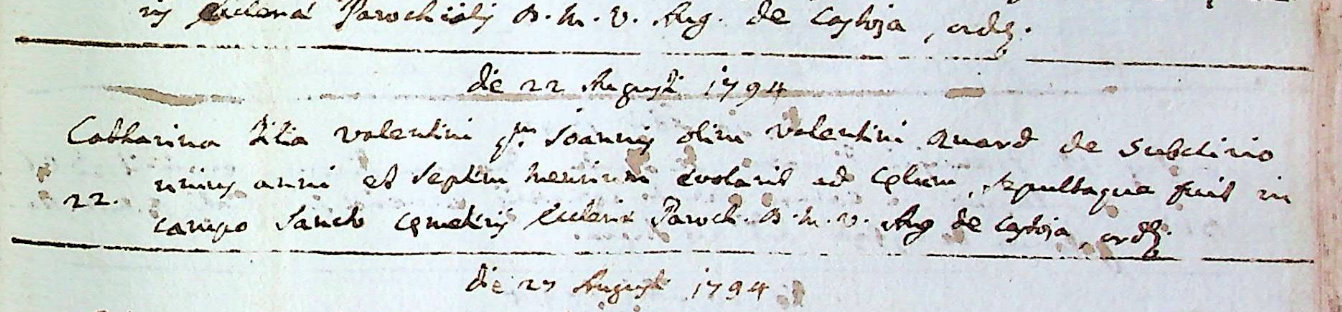 ij Ecclesiæ Parochialis B. M. V. Ang. de Castoja, ordg.
die 22 Augusti 1794
Catharina filia Valentini qm. Joannis olim Valentini Quard de Subclivio
22. unius anni et septem mensium evolavit ad Cęlum, sepultaque fuit in
campo Sancto cęmeterij Ecclesiæ Paroch. B. M. V. Ang de Castoja, ordg.
die 27 Augusti 1794